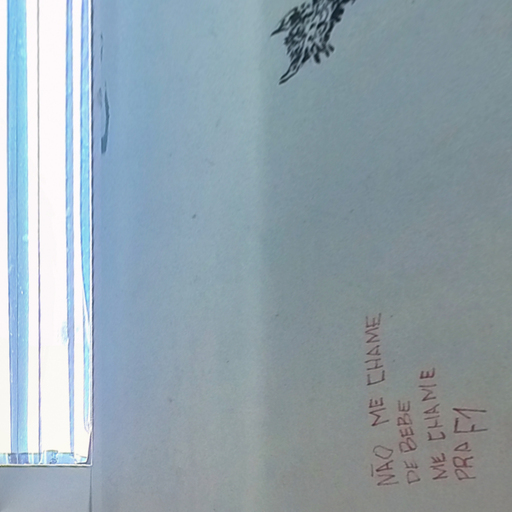 NÃO ME CHAME
DE BEBE
ME CHAME
PRA F1